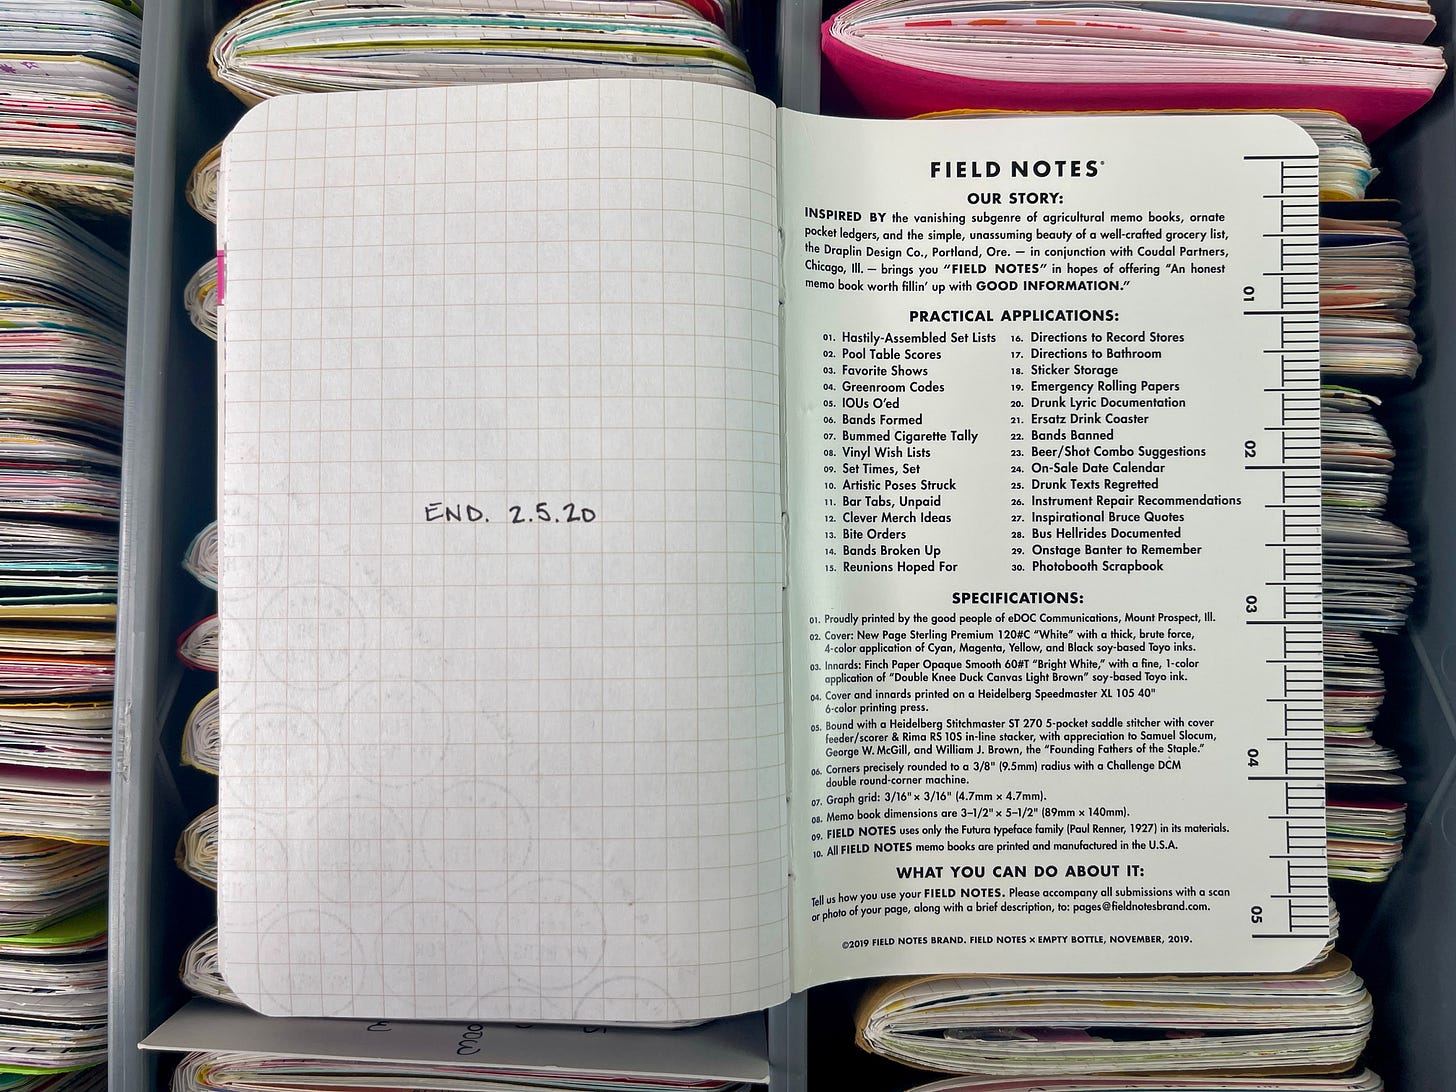 END. 2.5.20
FIELD NOTES®
OUR STORY:
INSPIRED BY the vanishing subgenre of agricultural memo books, ornate
pocket ledgers, and the simple, unassuming beauty of a well-crafted grocery list,
the Draplin Design Co., Portland, Ore. — in conjunction with Coudal Partners,
Chicago, Ill. — brings you “FIELD NOTES” in hopes of offering “An honest
memo book worth fillin’ up with GOOD INFORMATION.”
PRACTICAL APPLICATIONS:
01. Hastily-Assembled Set Lists
02. Pool Table Scores
03. Favorite Shows
04. Greenroom Codes
05. IOUs O’ed
06. Bands Formed
07. Bummed Cigarette Tally
08. Vinyl Wish Lists
09. Set Times, Set
10. Artistic Poses Struck
11. Bar Tabs, Unpaid
12. Clever Merch Ideas
13. Bite Orders
14. Bands Broken Up
15. Reunions Hoped For
16. Directions to Record Stores
17. Directions to Bathroom
18. Sticker Storage
19. Emergency Rolling Papers
20. Drunk Lyric Documentation
21. Ersatz Drink Coaster
22. Bands Banned
23. Beer/Shot Combo Suggestions
24. On-Sale Date Calendar
25. Drunk Texts Regretted
26. Instrument Repair Recommendations
27. Inspirational Bruce Quotes
28. Bus Hellrides Documented
29. Onstage Banter to Remember
30. Photobooth Scrapbook
SPECIFICATIONS:
01. Proudly printed by the good people of eDOC Communications, Mount Prospect, Ill.
02. Cover: New Page Sterling Premium 120#C “White” with a thick, brute force,
4-color application of Cyan, Magenta, Yellow, and Black soy-based Toyo inks.
03. Innards: Finch Paper Opaque Smooth 60#T “Bright White,” with a fine, 1-color
application of “Double Knee Duck Canvas Light Brown” soy-based Toyo ink.
04. Cover and innards printed on a Heidelberg Speedmaster XL 105 40"
6-color printing press.
05. Bound with a Heidelberg Stitchmaster ST 270 5-pocket saddle stitcher with cover
feeder/scorer & Rima RS 10S in-line stacker, with appreciation to Samuel Slocum,
George W. McGill, and William J. Brown, the “Founding Fathers of the Staple.”
06. Corners precisely rounded to a 3/8" (9.5mm) radius with a Challenge DCM
double round-corner machine.
07. Graph grid: 3/16" × 3/16" (4.7mm × 4.7mm).
08. Memo book dimensions are 3–1/2" × 5–1/2" (89mm × 140mm).
09. FIELD NOTES uses only the Futura typeface family (Paul Renner, 1927) in its materials.
10. All FIELD NOTES memo books are printed and manufactured in the U.S.A.
WHAT YOU CAN DO ABOUT IT:
Tell us how you use your FIELD NOTES. Please accompany all submissions with a scan
or photo of your page, along with a brief description, to: pages@fieldnotesbrand.com.
©2019 FIELD NOTES BRAND. FIELD NOTES × EMPTY BOTTLE, NOVEMBER, 2019.
01
02
03
04
05